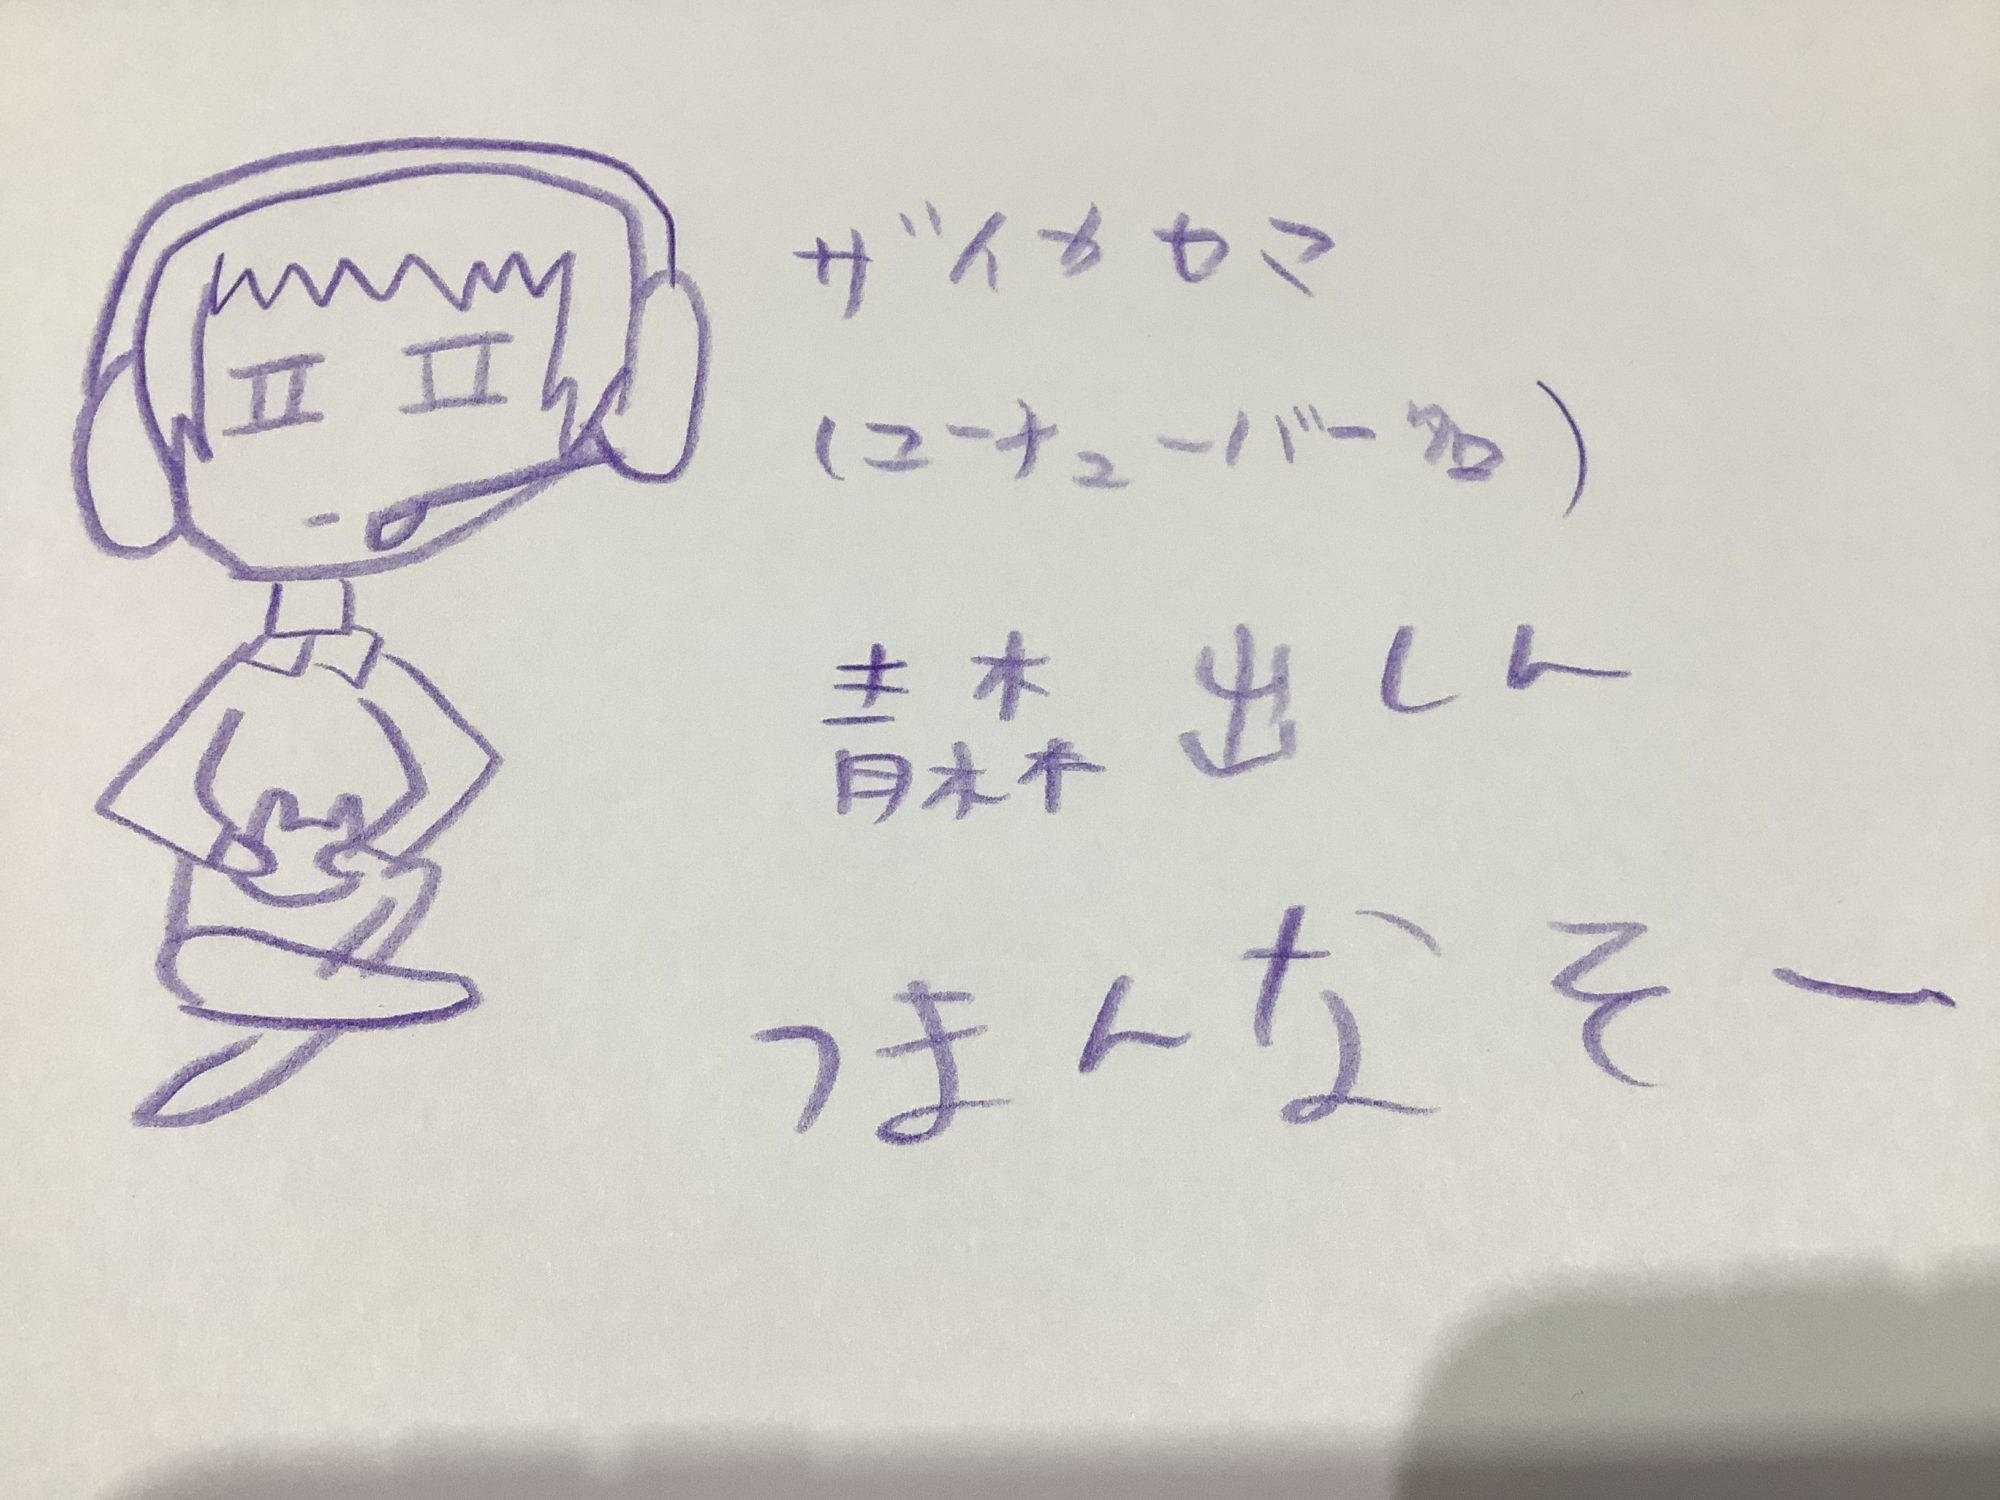 ザイオカマ
(ユーチューバー名)
青森出しん
つまんなそー